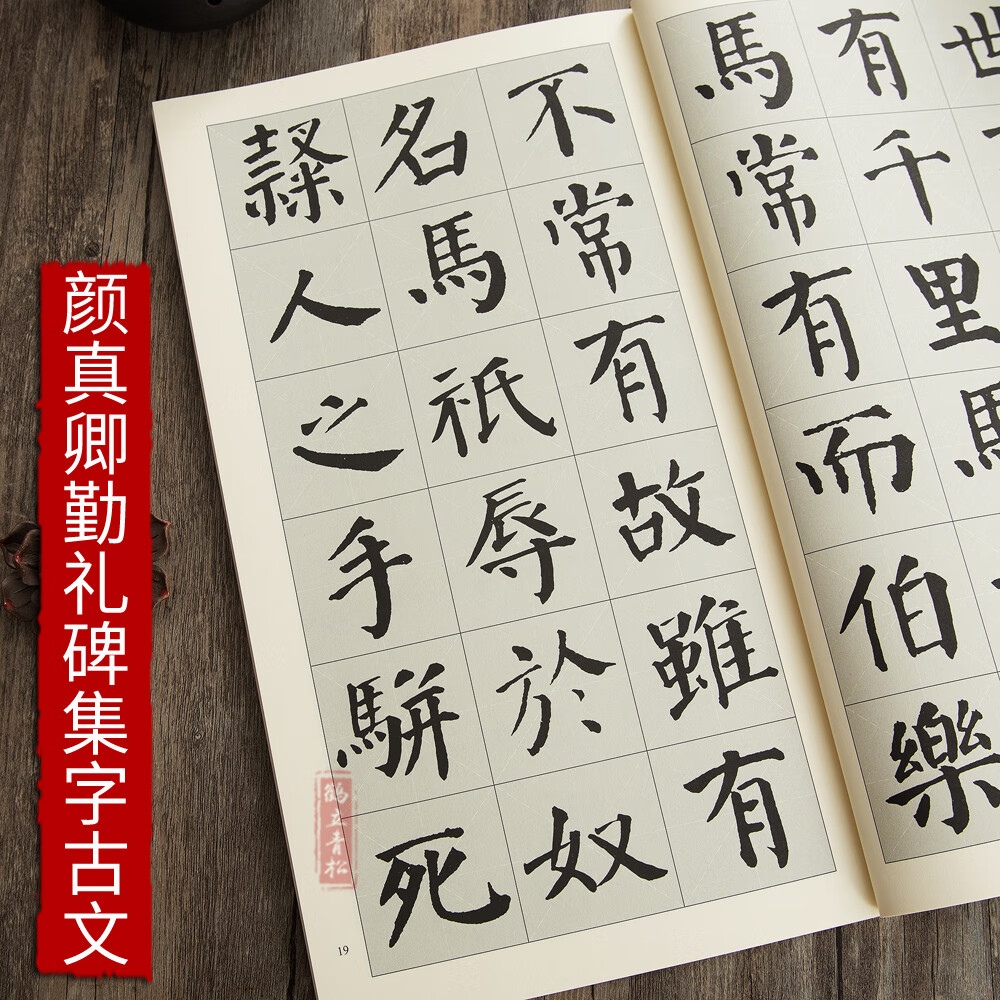 颜真卿勤礼碑集字古文
世
有千里馬
馬常有而伯樂
不常有故雖有
名馬祇辱於奴
𨽻人之手駢死
19
鹤立青松